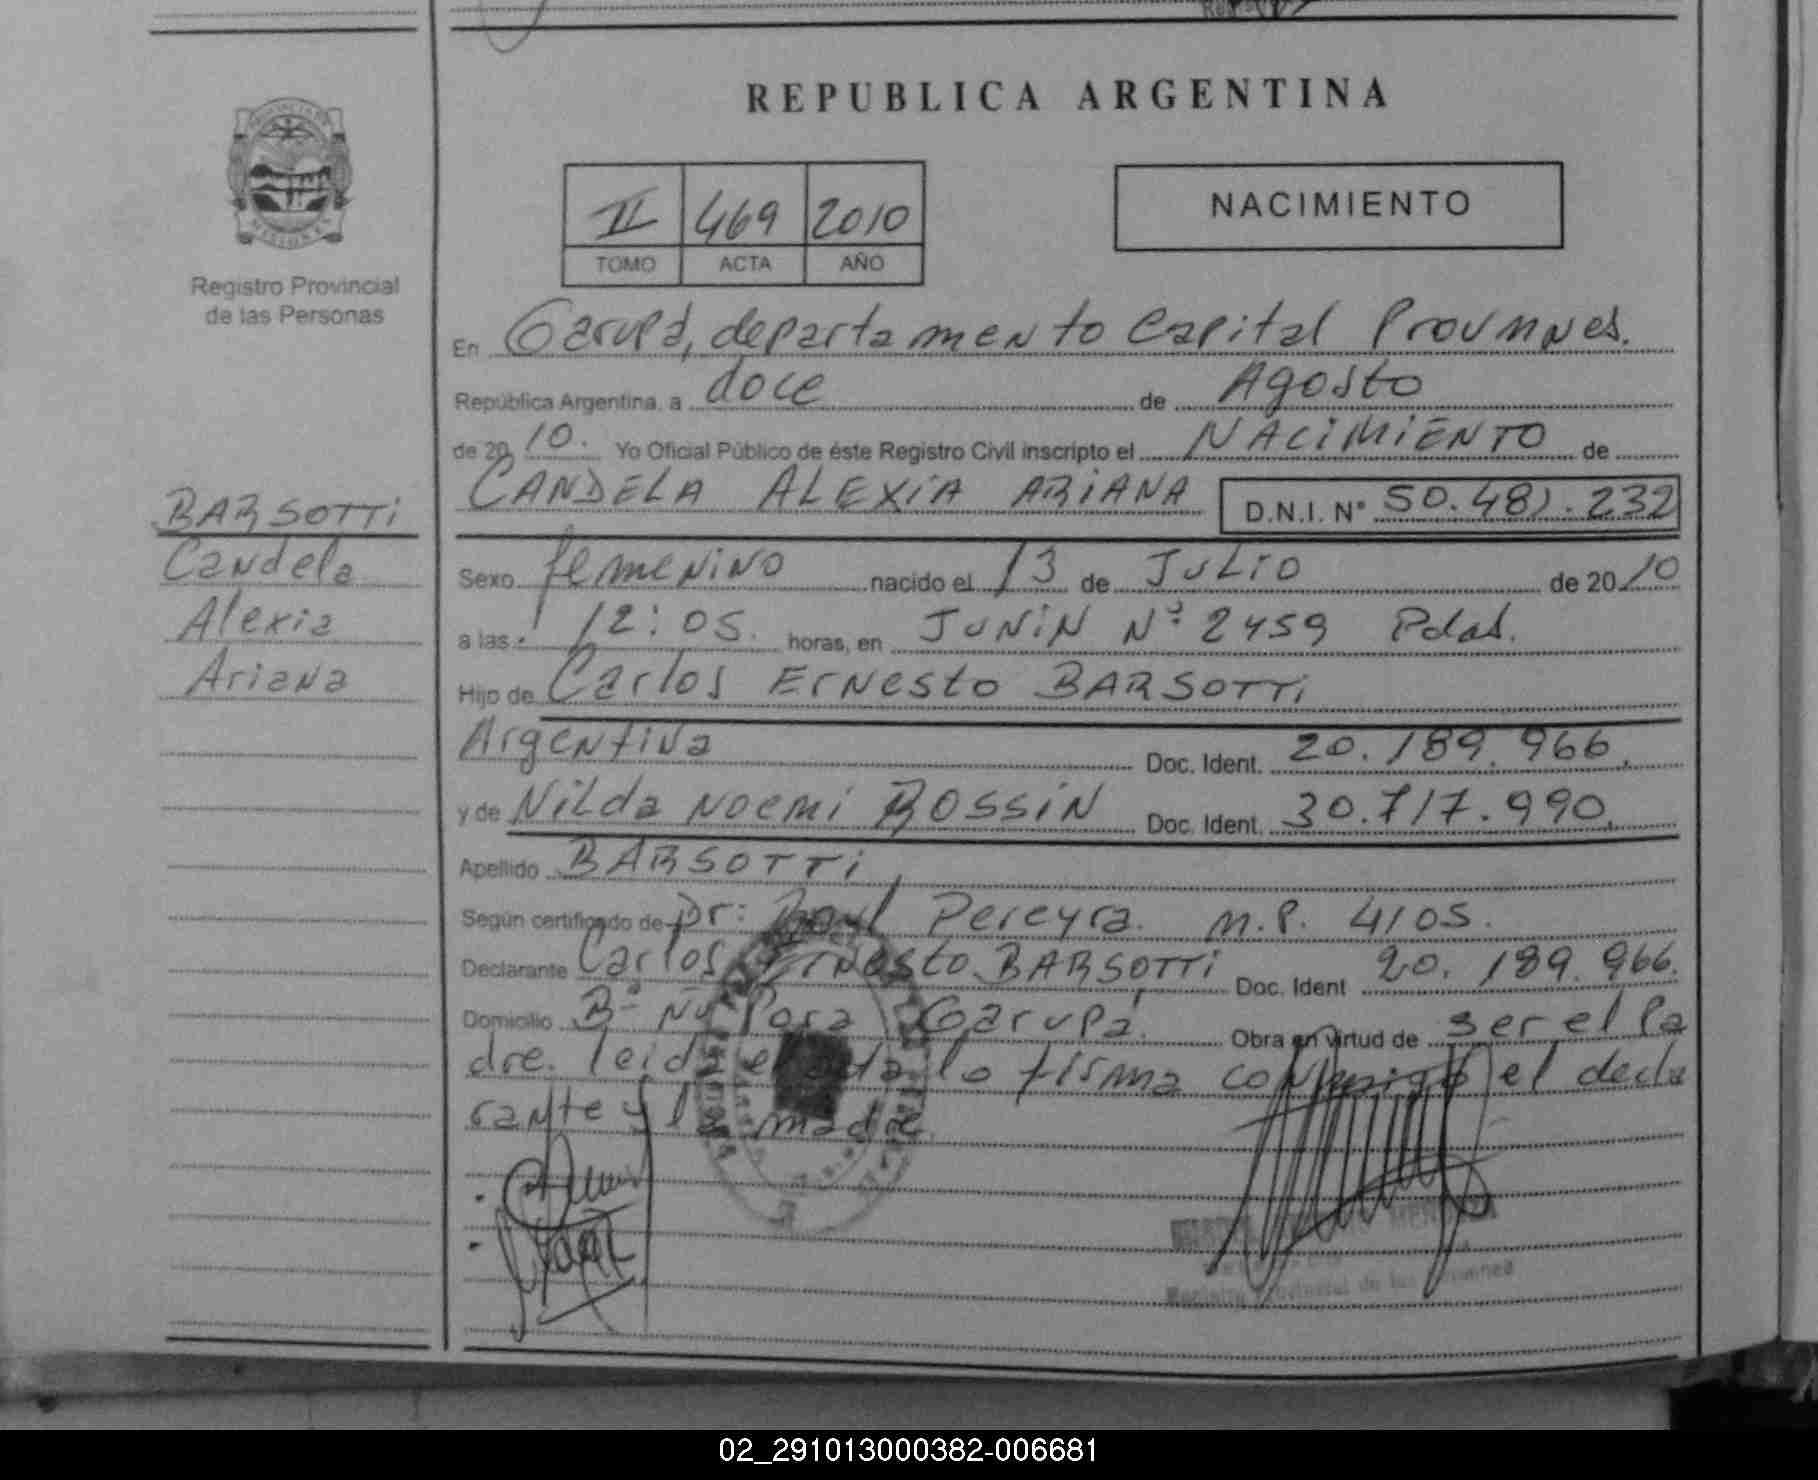 REPUBLICA ARGENTINA
II 469 2010
TOMO ACTA AÑO
NACIMIENTO
Registro Provincial
de las Personas
En Garupá, departamento Capital
República Argentina, a doce de Agosto
de 2010. Yo Oficial Público de éste Registro Civil inscripto el NACIMIENTO de
CANDELA ALEXIA ARIANA D.N.I. N° 50.481.232
BARSOTTI
Candela
Alexia
Ariana
Sexo femenino nacido el 13 de JULIO de 2010
a las 12:05. horas, en JUNIN N° 2459 Pdas.
Hijo de Carlos Ernesto BARSOTTI
Argentina Doc. Ident. 20.189.966.
y de Nilda Noemi ROSSIN Doc. Ident. 30.717.990.
Apellido BARSOTTI
Según certificado de Dr: Raul Pereyra. M.P. 4105.
Declarante Carlos Ernesto BARSOTTI Doc. Ident 20.189.966.
Domicilio B° Ñu Pora Garupá. Obra en virtud de ser el Pa
dre. leida el acta lo firma conmigo el decla
rante y la madre.
Registro Provincial de las Personas
02_291013000382-006681